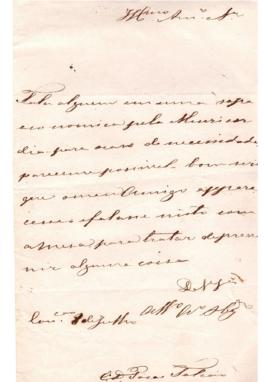 Illmo Amº Sr
Fala alguem em uma sopa
economica pela Misericor
dia para caso de necessidade
parece me possivel. bom seri
que o meu Amigo appare
cesse e falasse nisto com
a Mesa para tratar de preve
nir alguma coisa
D. V. Sª
1 de Julho Attº Vº